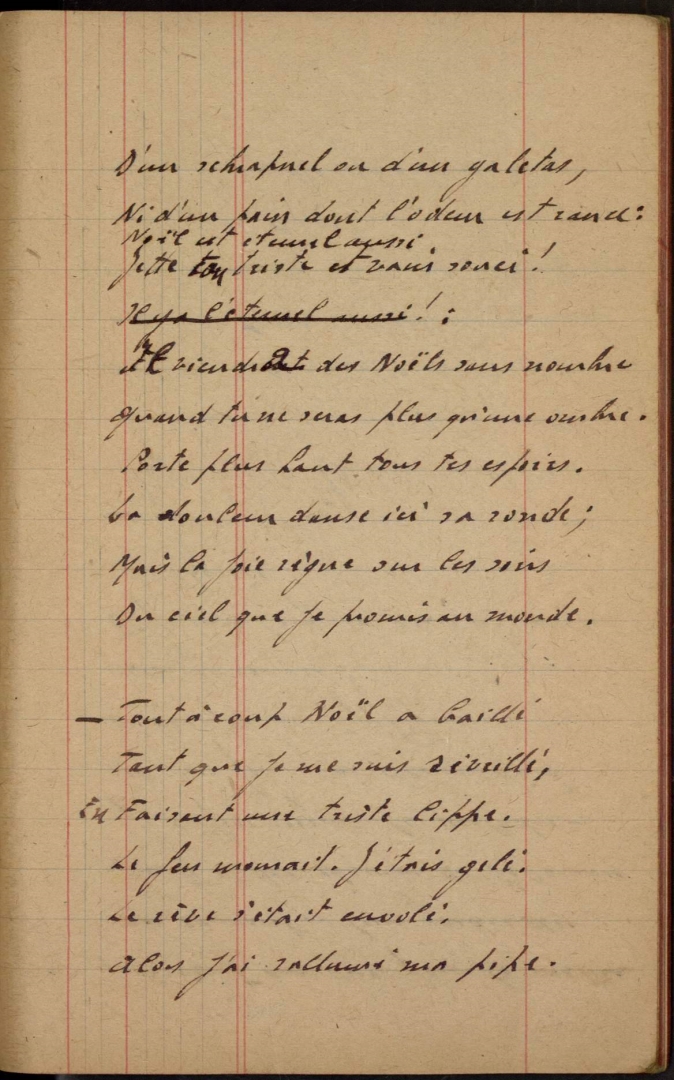 D'un schrapnel ou d'un galetas,
Ni d'un pain dont l'odeur est rance:
Noël est éternel aussi
Jette ton triste et vain souci!
Il y a l'éternel aussi! :
Il viendra des Noëls sans nombre
Quand tu ne seras plus qu'une ombre.
Porte plus haut tous tes espoirs.
La douleur danse ici sa ronde;
Mais la joie règne sur les soirs
Du ciel que je promis au monde.
— Tout à coup Noël a baillé
Tant que je me suis réveillé,
En Faisant une triste lippe.
Le feu mourait. J'étais gelé.
Le rêve s'était envolé.
Alors j'ai rallumé ma pipe.